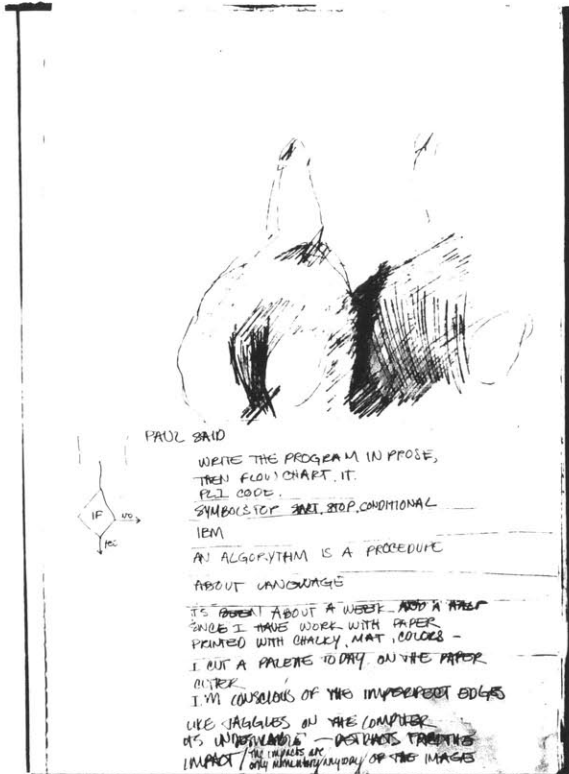 PAUL SAID
WRITE THE PROGRAM IN PROSE,
THEN FLOW CHART. IT.
PL1 CODE.
SYMBOLS FOR START, STOP, CONDITIONAL
IF
NO
YES
IBM
AN ALGORYTHM IS A PROCEDURE
ABOUT LANGUAGE
ITS BEEN ABOUT A WEEK AND A HALF
SINCE I HAVE WORK WITH PAPER
PRINTED WITH CHALKY, MAT, COLORS -
I CUT A PALETTE TODAY ON THE PAPER
CUTTER
I'M CONSCIOUS OF THE IMPERFECT EDGES
LIKE JAGGLES ON THE COMPUTER
ITS UNDESIRABLE - DETRACTS THE
the impacts are
IMPACT / only momentary anyway / OF THE IMAGE